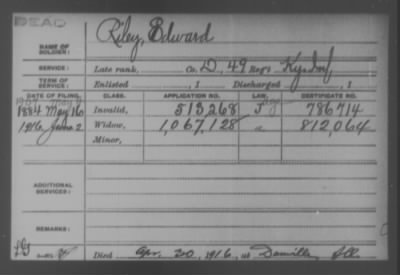 DEAD
Riley, Edward
NAME OF SOLDIER:
SERVICE: Late rank, Co. D, 49 Reg't Ky Inf
TERM OF SERVICE: Enlisted , 1 Discharged , 1
DATE OF FILING. CLASS. APPLICATION NO. LAW. CERTIFICATE NO.
1884 May 16 Invalid, 513,268 J 786714
1916 June 2 Widow, 1,067,128 a 812,064
Minor,
ADDITIONAL SERVICES:
REMARKS:
Died Apr. 30, 1916, at Danville Ill.